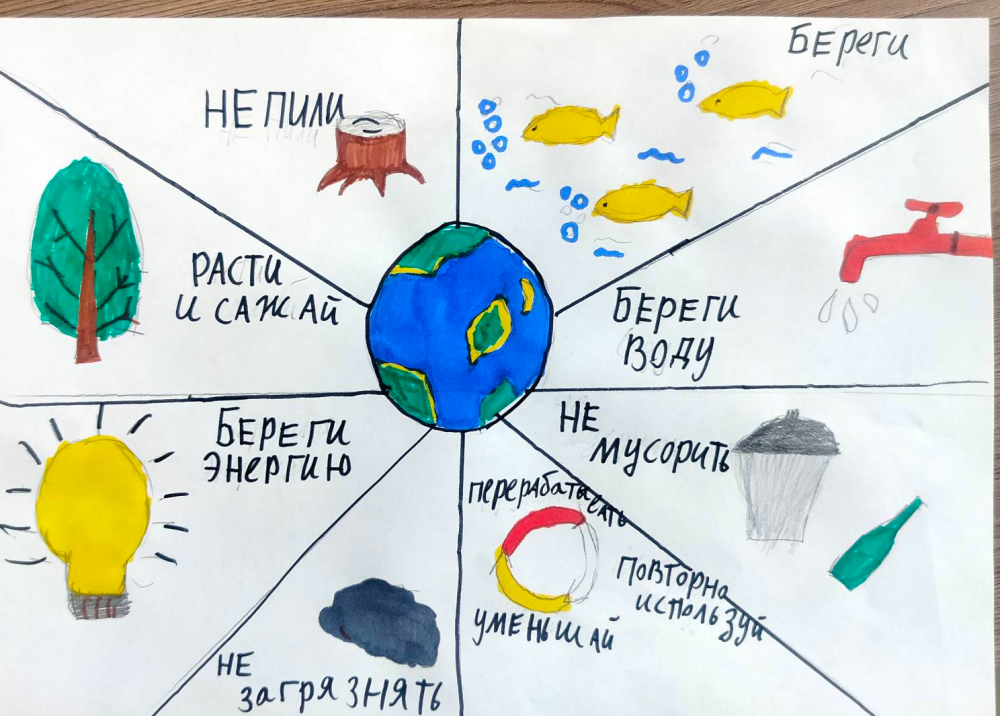 НЕ ПИЛИ
Береги
РАСТИ
И САЖАЙ
БЕРЕГИ
ВОДУ
БЕРЕГИ
ЭНЕРГИЮ
НЕ
МУСОРИТЬ
перерабатысать
ПОВТОРНО
ИСПОЛЬЗУЙ
УМЕНЬШАЙ
НЕ
ЗАГРЯЗНЯТЬ